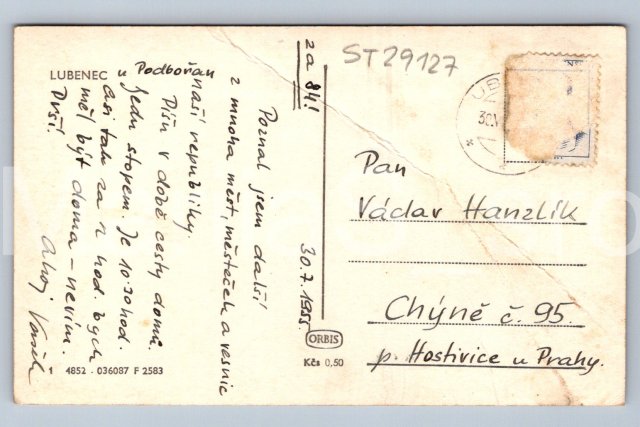 LUBENEC
u Podbořan
ST29127
za 84!
30.7.1955
Poznal jsem další
z mnoha měst, městeček a vesnic
naší republiky.
Píšu v době cesty domů.
Jedu stopem. Je 10.30 hod.
asi tak za 2 hod. bych
měl být doma - nevím.
Prší.
Ahoj Vašek
Pan
Václav Hanzlík
Chýně č. 95
p. Hostivice u Prahy.
ORBIS
Kčs 0,50
1 4852 - 036087 F 2583